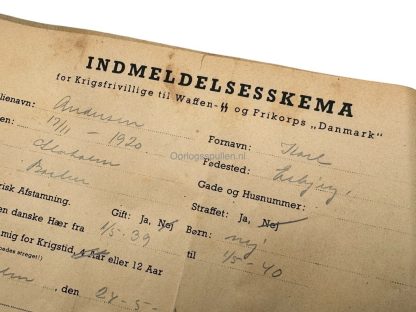 INDMELDELSESSKEMA
for Krigsfrivillige til Waffen-ᛋᛋ og Frikorps „Danmark“
ilienavn: Andersen
Fornavn: Karl
en: 17/11 - 1920
Fødested: Esbjerg
Oorlogsspullen.nl
Gade og Husnummer:
Barber
risk Afstamning.
Gift: Ja, Nej
Straffet: Ja, Nej
en danske Hær fra 1/5-39
Børn: nej
til 1/5-40
mig for Krigstid, Aar eller 12 Aar
pedes streget!)
, den 24-5-